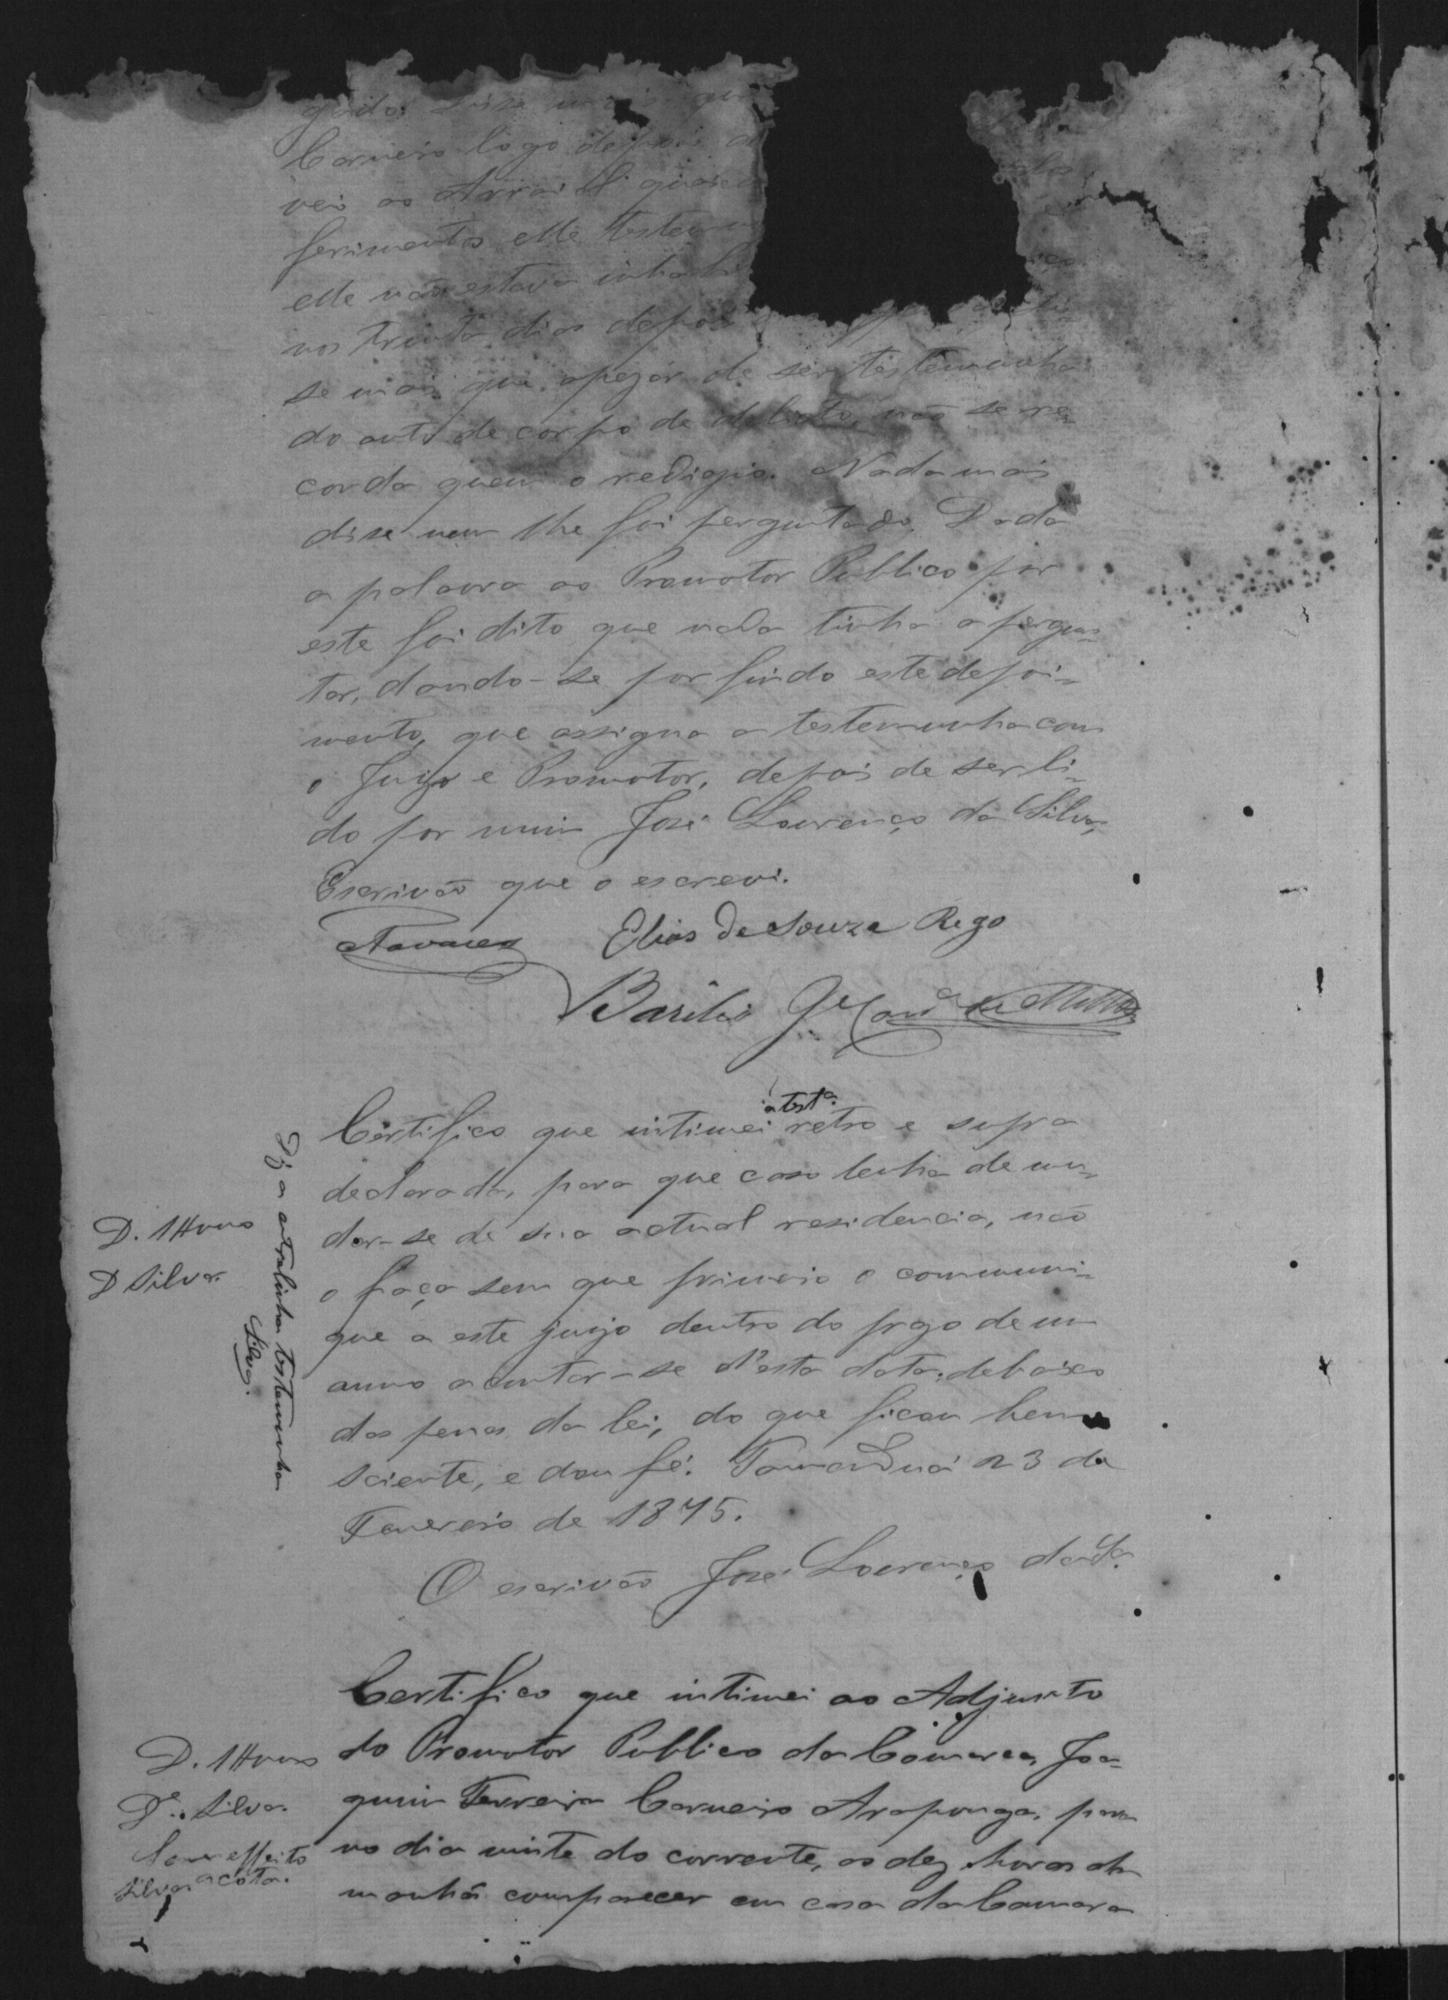 gado: disse mais que
Carneiro logo depois d
veio ao Arraial
ferimentos elle testem
elle não estava inhabi
nos trinta dias depois
se mais que apezar de ser testemunha
do auto de corpo de delicto, não se re-
corda quem o redigio. Nada mais
disse nem lhe foi perguntado. Dada
a palavra ao Promotor Publico por
este foi dito que nada tinha a pergun-
tar, dando-se por findo este depoi-
mento, que assigna a testemunha com
o Juiz e Promotor, depois de ser li-
do por mim José Lourenço da Silva,
Escrivão que o escrevi.
Tavares Elias de Souza Rego
Basilio
Certifico que intimei á testa. retro e supra
declarada, para que caso tenha de mu-
dar-se de sua actual residencia, não
o faça sem que primeiro o communi-
que a este juizo dentro do prazo de um
anno a contar-se d'esta data, debaixo
das penas da lei, do que ficou bem
sciente, e dou fé. Tamanduá 23 de
Fevereiro de 1875.
O escrivão José Lourenço da Sa.
Diz a entrelinha testemunha
Silva.
D. 1
D Silva.
Certifico que intimei ao Adjunto
do Promotor Publico da Comarca, Joa-
quim Ferreira Carneiro Araponga, para
no dia vinte do corrente, as dez horas da
manhã comparecer em casa da Camara
D. 1
De. Silva.
Sem effeito
a cota.
Silva